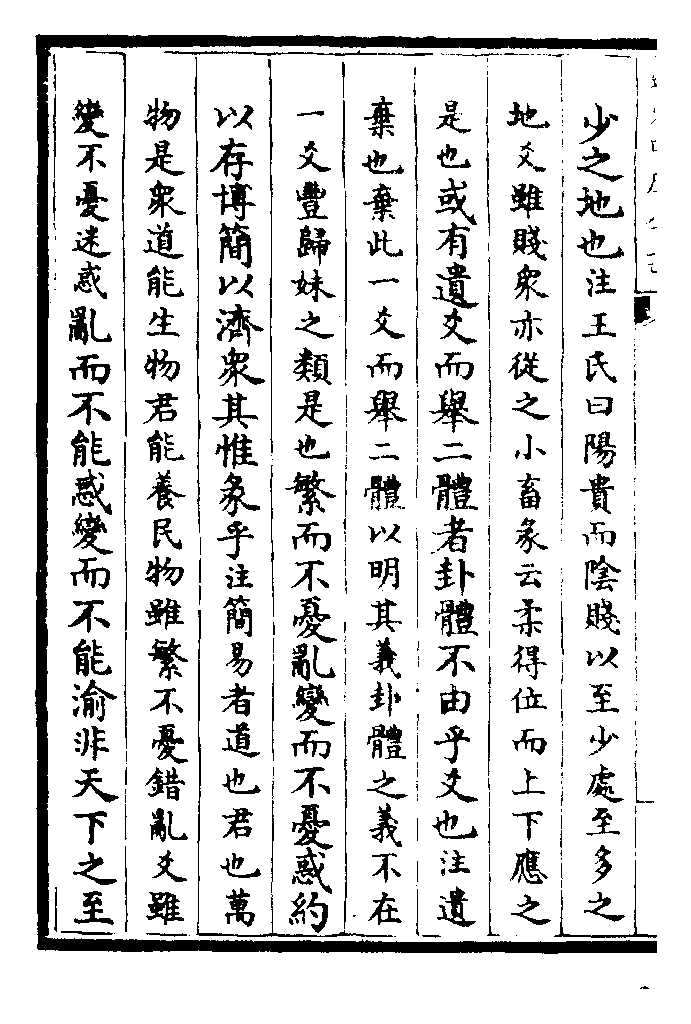 少之地也注王氏曰陽貴而陰賤以至少處至多之
地爻雖賤衆亦從之小畜彖云柔得位而上下應之
是也或有遺爻而舉二體者卦體不由乎爻也注遺
棄也棄此一爻而舉二體以明其義卦體之義不在
一爻豐歸妹之類是也繁而不憂亂變而不憂惑約
以存博簡以濟衆其惟彖乎注簡易者道也君也萬
物是衆道能生物君能養民物雖繁不憂錯亂爻雖
變不憂迷惑亂而不能惑變而不能渝非天下之至